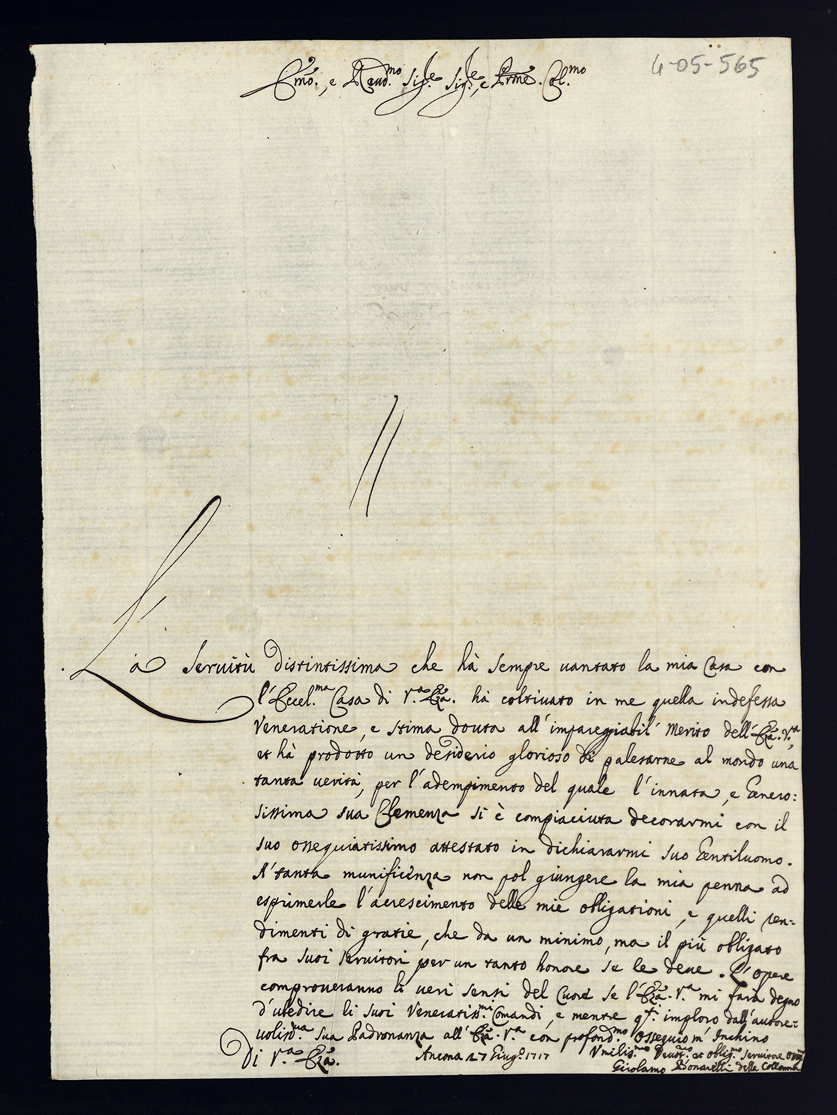 4-05-565
Em̃o., e Reud.mo Sig.re Sig.re, e Prñe. Col.mo
La Seruitù distintissima che hà sempre uantato la mia Casa con
l'Eccel.ma Casa di V.a Em̃a. hà coltiuato in me quella indefessa
Veneratione, e stima douta all'impareggiabil' Merito dell'Em̃a. V.a
et hà prodotto un desiderio glorioso di palesarne al mondo una
tanta uerità, per l'adempimento del quale l'innata, e Genero:
sissima sua Clemenza si è compiaciuta decorarmi con il
suo ossequiatissimo attestato in dichiararmi suo Gentiluomo.
A' tanta munificienza non pol giungere la mia penna ad
esprimerle l'acrescimento delle mie obligationi, e quelli ren-
dimenti di gratie, che da un minimo, ma il più obligato
fra suoi seruitori per un tanto honore se le deue. L'opere
comproueranno li ueri sensi del Cuore se l'Em̃a. V.a mi farà degno
d'ubedire li suoi Veneratis.mi Comandi, e mentre q.ti imploro dall'autore:
uolis.ma sua Padronanza all'Em̃a. V.a con profond.mo Ossequio m'Inchino
Di V.a Em̃a. Ancona 27 Giug.o 1717 Vmilis.mo Deuot.mo et oblig.mo Seruitore
Girolamo Bonarelli della Colonna